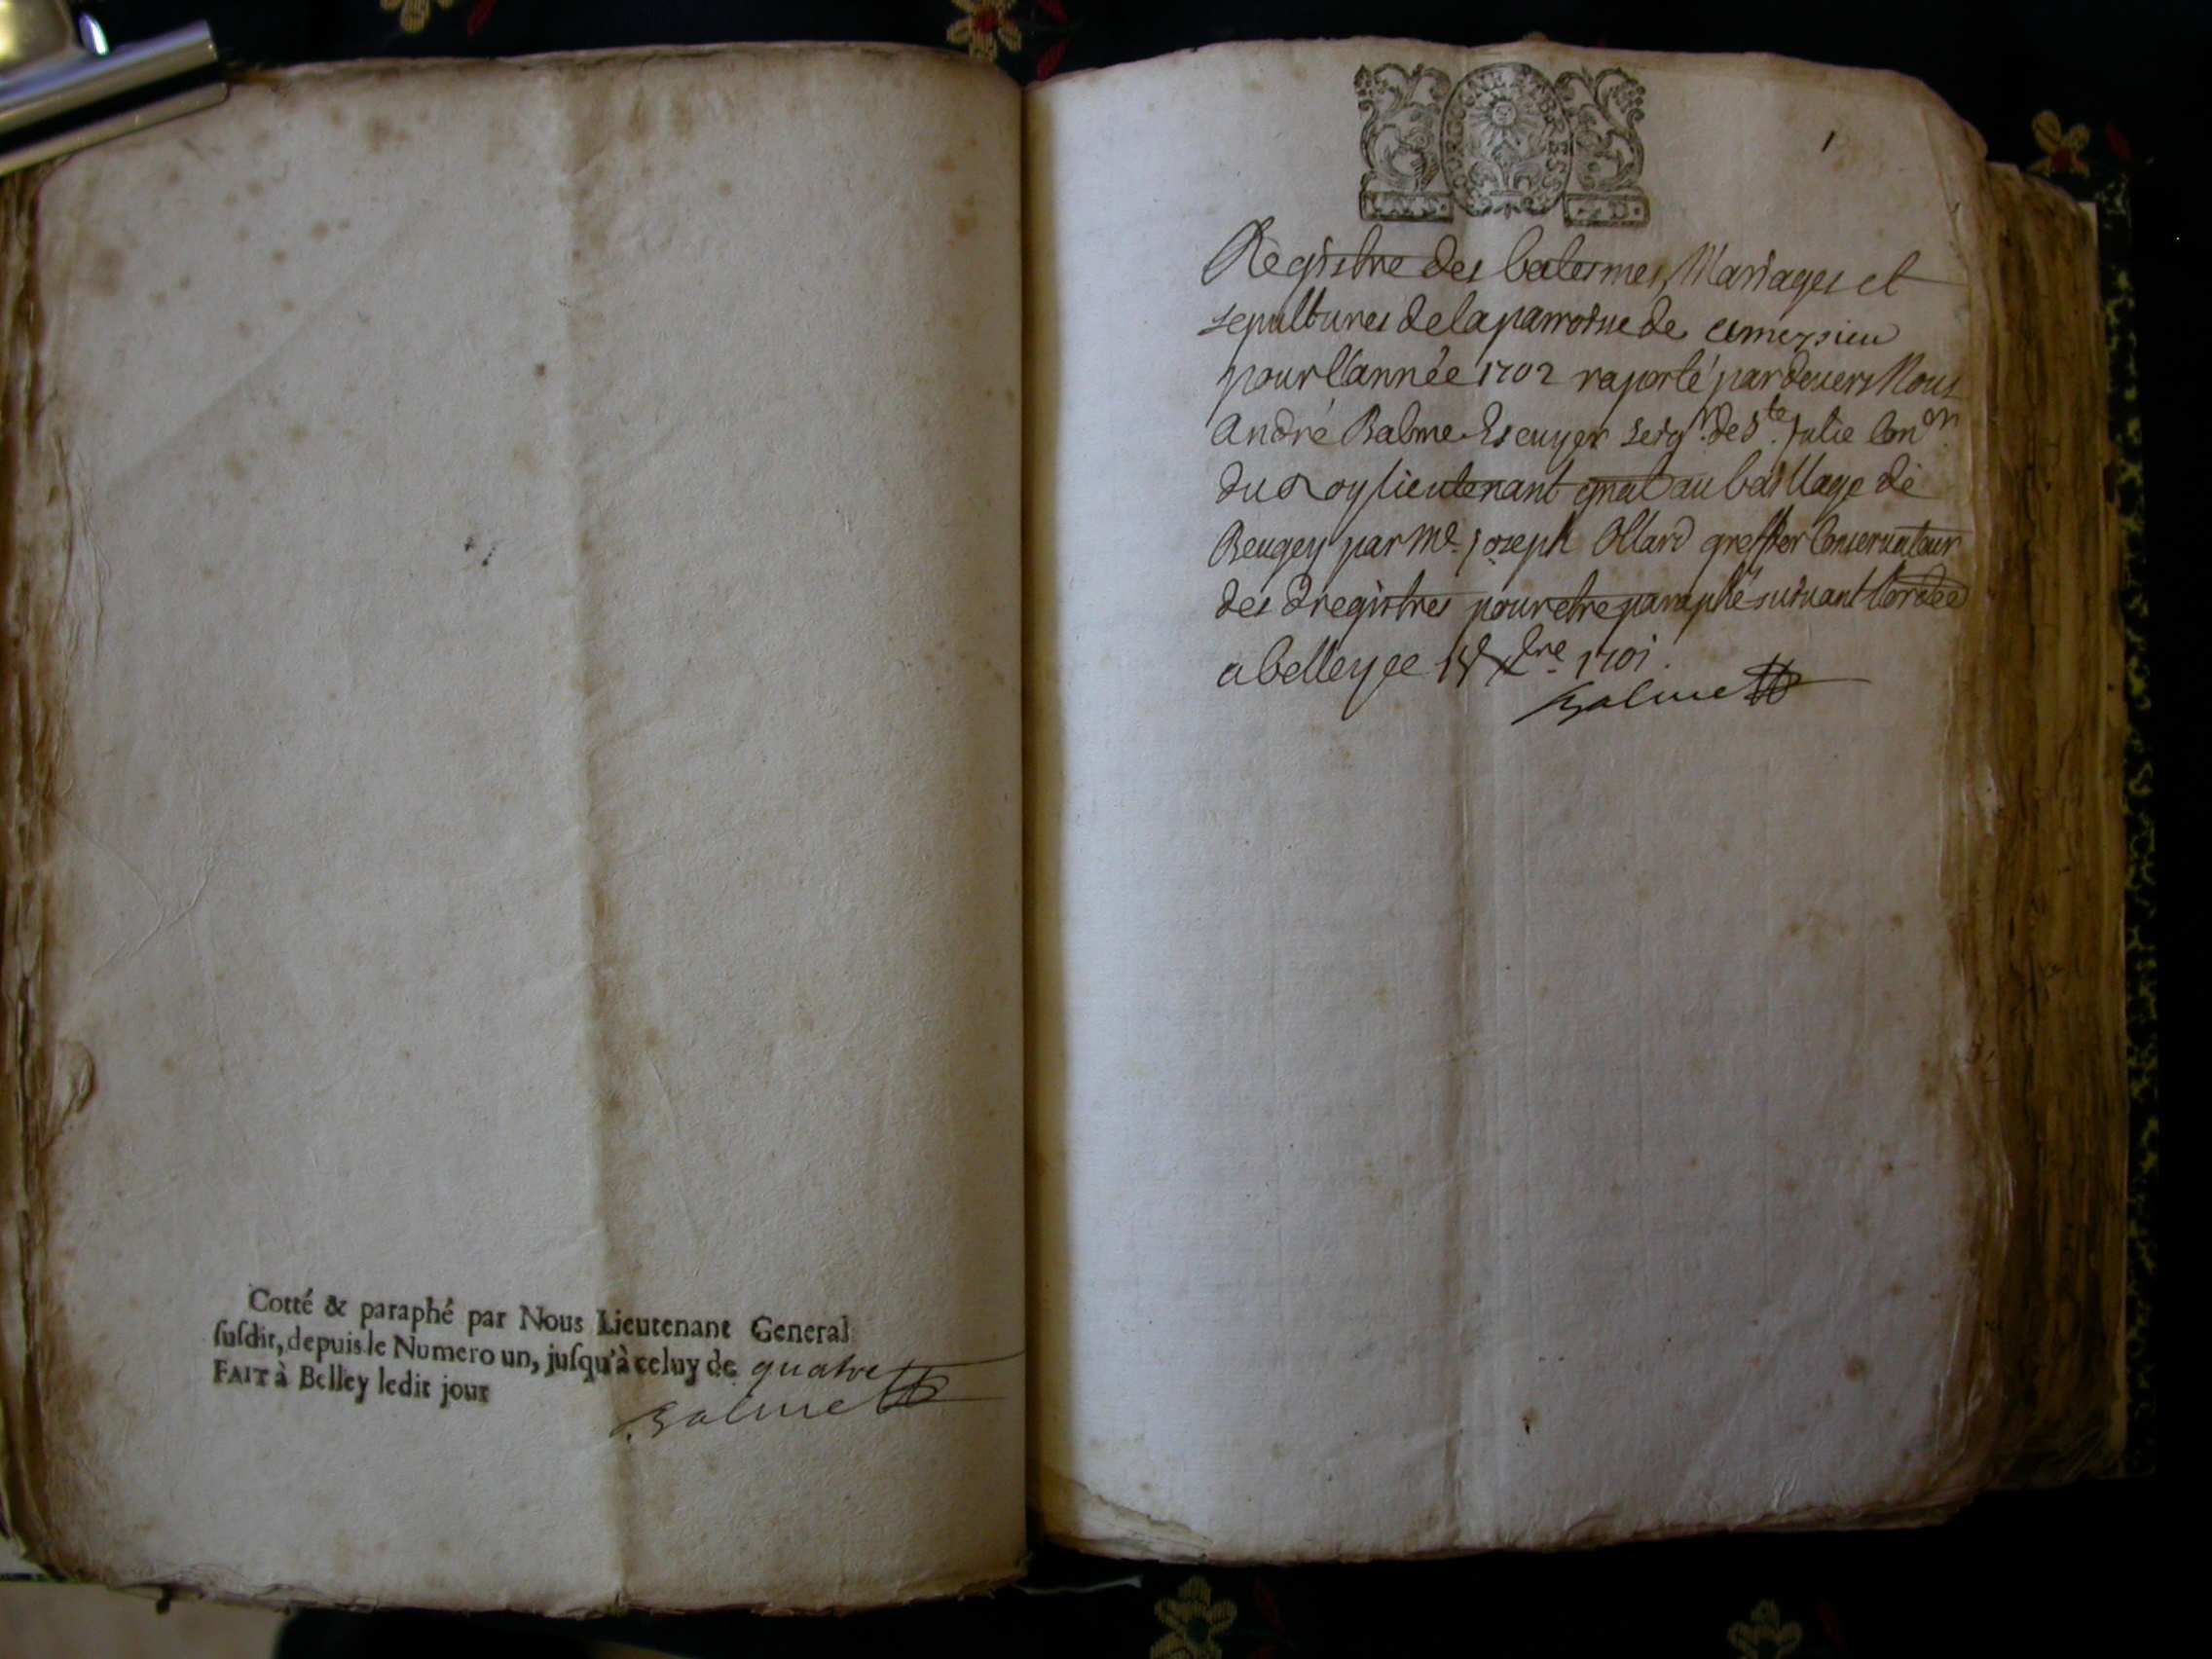 Cotté & paraphé par Nous Lieutenant General
ſuſdit, depuis le Numero un, juſqu'à celuy de quatre
FAIT à Belley ledit jour
Balme
1
Registre des batesmes, Mariages et
sepultures de la parroisse de cemeysieu
pour l'année 1702 raporté pardevers Nous
André Balme Escuyer Seigr. de Ste. Julie Coner.
du Roy lieutenant gnal au baillage de
Beugey par Me. Joseph Ollard greffier Conservateur
des dregistres pour etre paraphé suivant l'ordce
a belley ce 15e Xbre 1701.
Balme